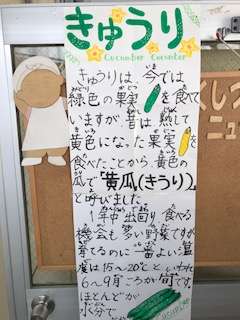 きゅうり
Cucumber Cucumber
きゅうりは、今では
緑色の果実を食べて
いますが昔は熟して
黄色になった果実を
食べたことから、黄色の
瓜で「黄瓜(きうり)」
と呼びました
1年中出回り食べる
機会も多い野菜ですが
育てるのに一番よい温
度は15〜20℃といわれ
6〜9月ころが旬です。
ほとんどが
水分で
くしつ
ニュー